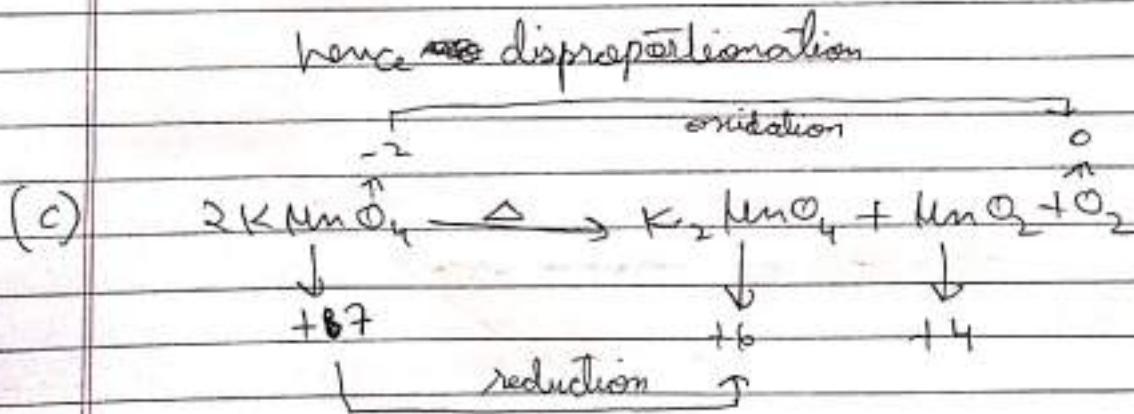 hence disproportionation
oxidation
-2 0
(c) 2KMnO₄ —Δ→ K₂MnO₄ + MnO₂ + O₂
+7 +6 +4
reduction